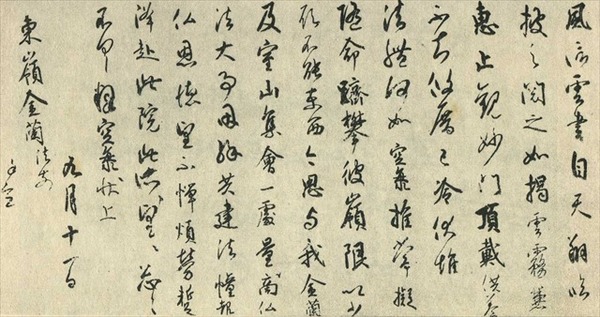 風信雲書自天翔臨
披之閲之如揭雲霧兼
惠止觀妙門頂戴供養
不知攸厝已冷伏惟
法體何如空海推常擬
隨命躋攀彼嶺限以少
願不能東西今思与我金蘭
及室山集會一處量商仏
法大事因縁共建法幢報
仏恩徳望不憚煩勞蹔
降赴此院此所望々忩々
不具釋空海状上
九月十一日
東嶺金蘭法前
謹空